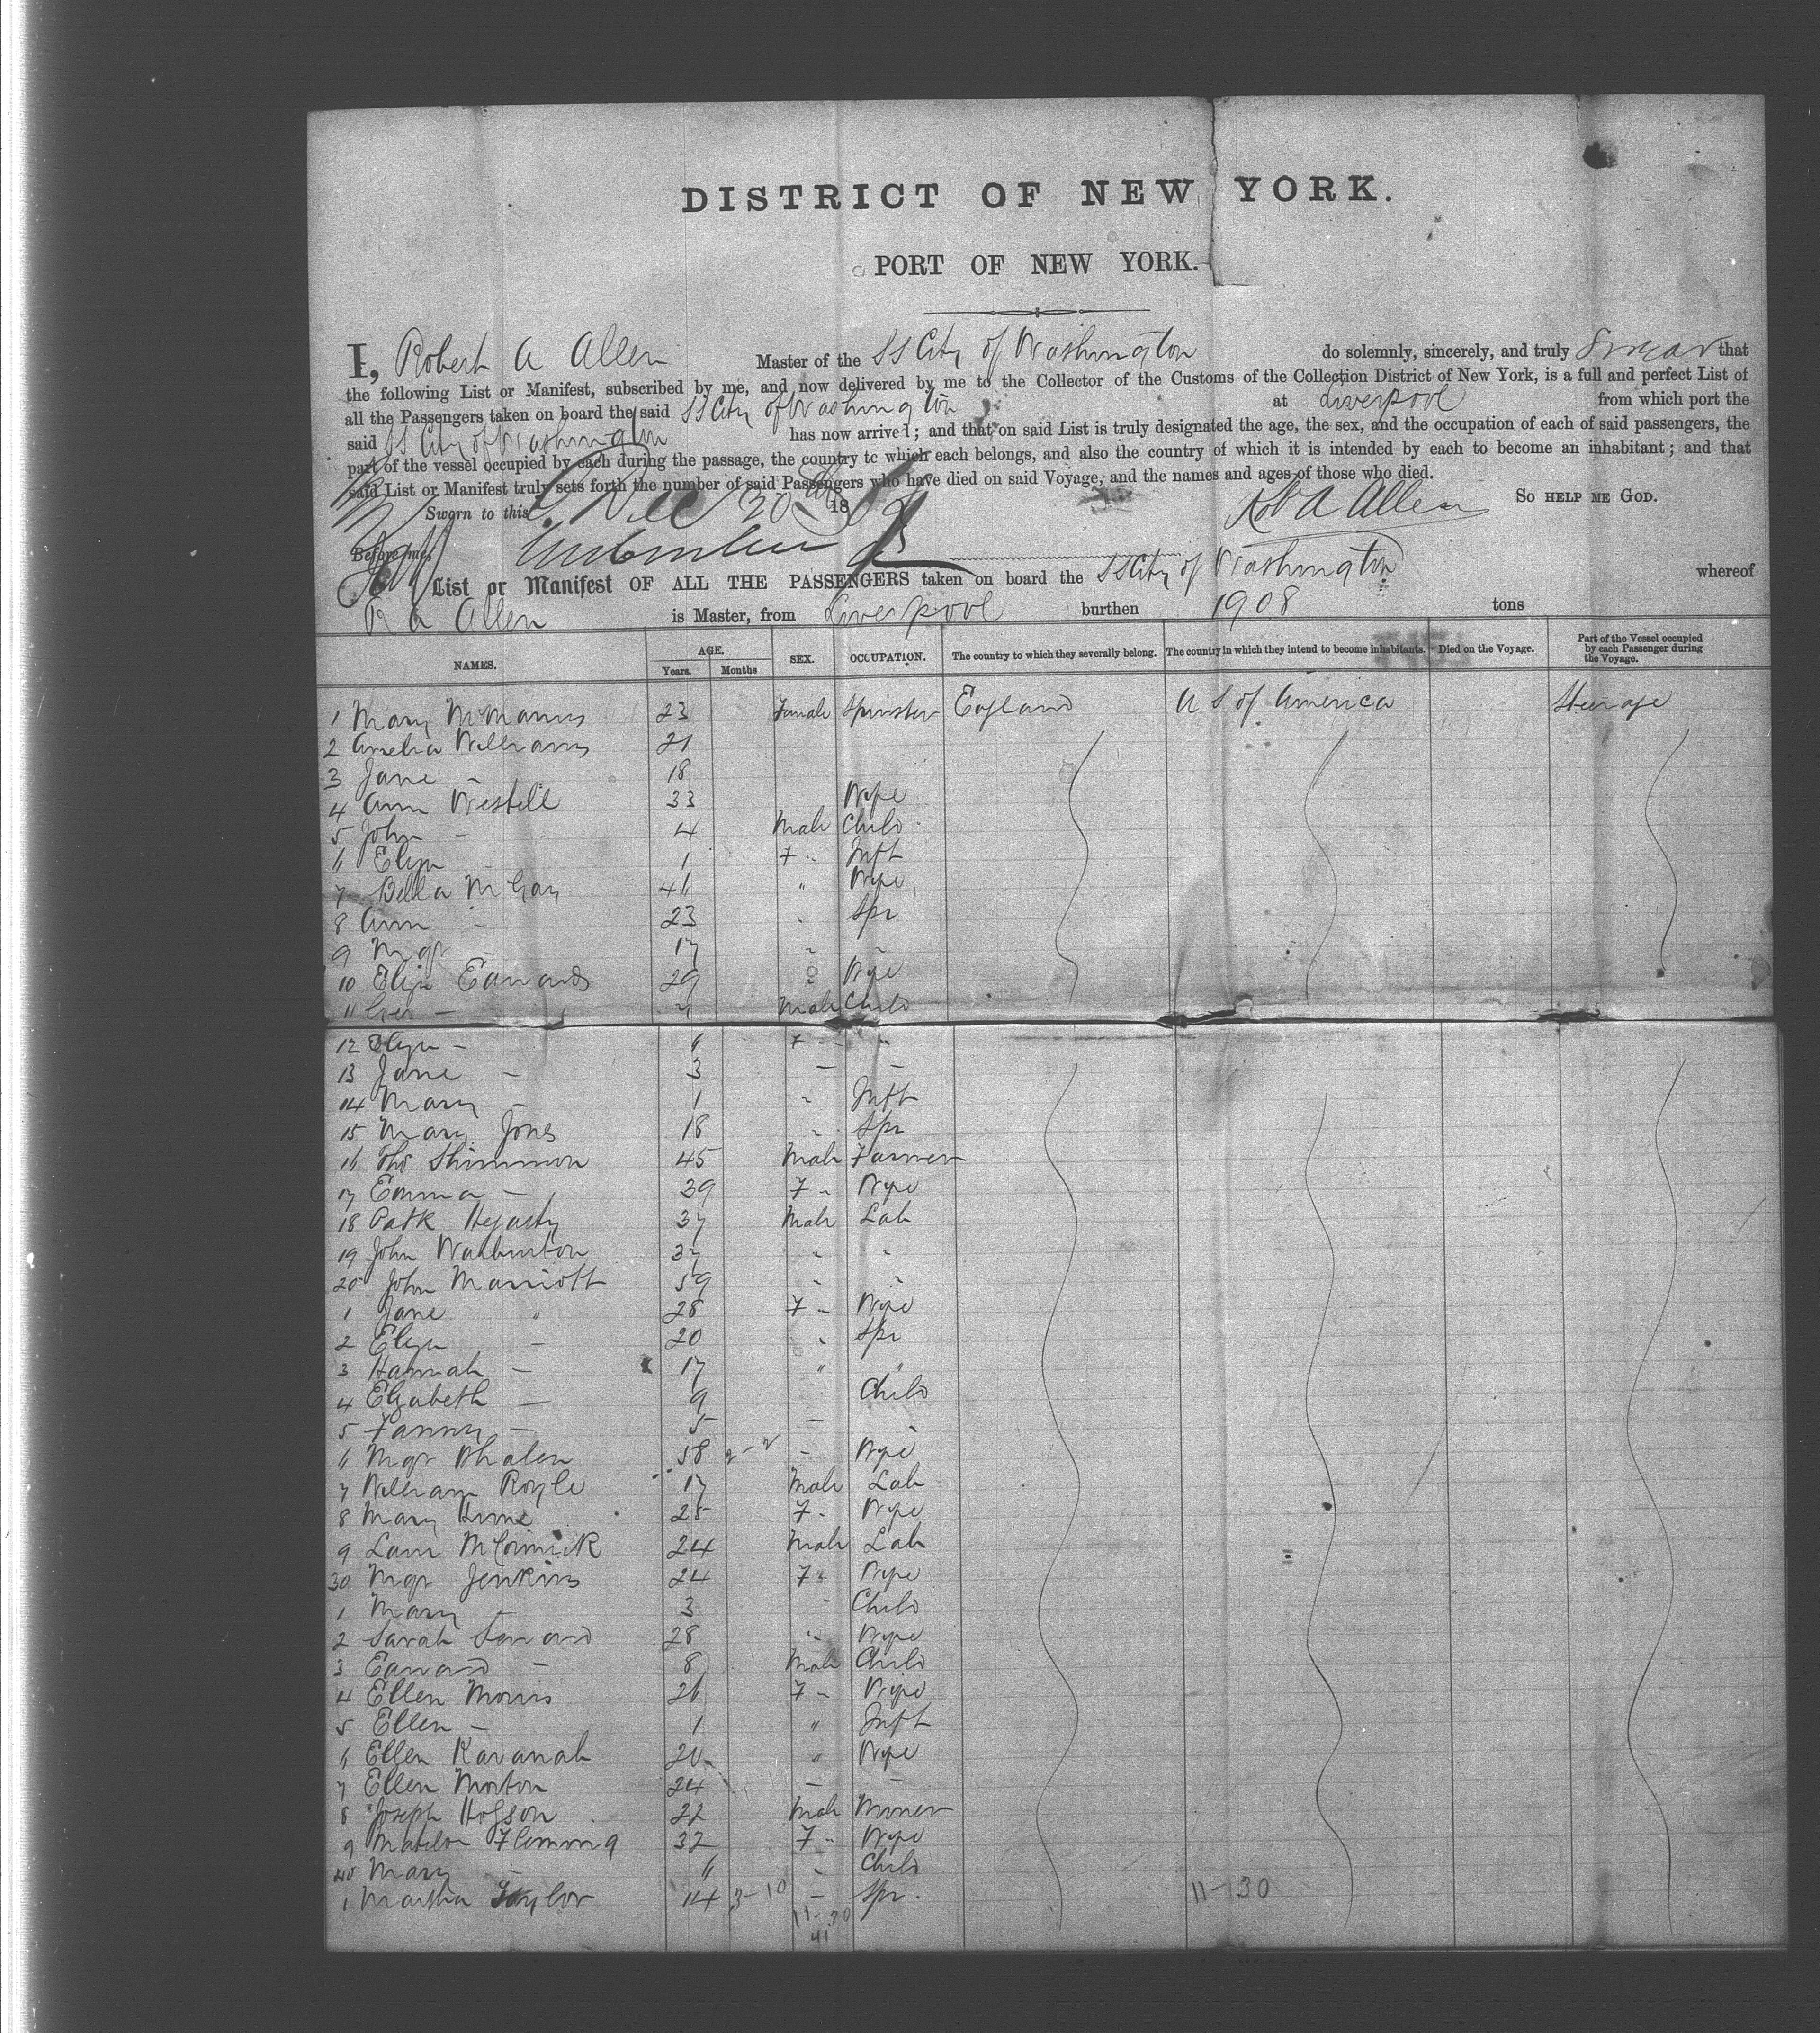 DISTRICT OF NEW YORK.
PORT OF NEW YORK.
I, Robert A Allen Master of the SS City of Washington do solemnly, sincerely, and truly Swear that
the following List or Manifest, subscribed by me, and now delivered by me to the Collector of the Customs of the Collection District of New York, is a full and perfect List of
all the Passengers taken on board the said SS City of Washington at Liverpool from which port the
said SS City of Washington has now arrived; and that on said List is truly designated the age, the sex, and the occupation of each of said passengers, the
part of the vessel occupied by each during the passage, the country to which each belongs, and also the country of which it is intended by each to become an inhabitant; and that
said List or Manifest truly sets forth the number of said Passengers who have died on said Voyage, and the names and ages of those who died.
Sworn to this Dec 30 18 Rob A Allen SO HELP ME GOD.
Before me,
List or Manifest OF ALL THE PASSENGERS taken on board the SS City of Washington whereof
R A Allen is Master, from Liverpool burthen 1908 tons
NAMES. AGE. Years. Months SEX. OCCUPATION. The country to which they severally belong. The country in which they intend to become inhabitants. Died on the Voyage. Part of the Vessel occupied by each Passenger during the Voyage.
1 Mary McManus 23 Female Spinster England U S of America Steerage
2 Amelia Williams 21
3 Jane - 18
4 Ann Westell 33 Wife
5 John - 4 Male Child
6 Eliza - 1 F " Inft
7 Bella 46 " Wife
8 Ann - 23 " Spr
9 Mgt - 17 " "
10 Eliza Edwards 29 " Wife
11 - Male Child
12 Eliza - 6 F " "
13 Jane - 3 - -
14 Mary - 1 " Inft
15 Mary Jones 18 " Spr
16 Thos Shimmon 45 Male Farmer
17 Emma - 39 F " Wife
18 Patk Hegarty 37 Male Lab
19 John Warburton 37 " "
20 John Marriott 59 " "
1 Jane " 28 F " Wife
2 Eliza - 20 " Spr
3 Hannah - 17 " "
4 Elizabeth - 9 Child
5 Fanny - 5 - "
6 Mgt Whalen 58 - Wife
7 William Royle 17 Male Lab
8 Mary 25 F " Wife
9 McCormick 24 Male Lab
30 Mgt Jenkins 24 F " Wife
1 Mary - 3 " Child
2 Sarah 28 " Wife
3 Edward - 8 Male Child
4 Ellen Morris 26 F " Wife
5 Ellen - 1 " Inft
6 Ellen Kavanah 20 " Wife
7 Ellen Morton 24 - -
8 Joseph Hogson 22 Male Miner
9 Matilda Fleming 32 F " Wife
40 Mary - 6 " Child
1 Martha Taylor 14 3-10 - Spr. 11-30
11-30
41